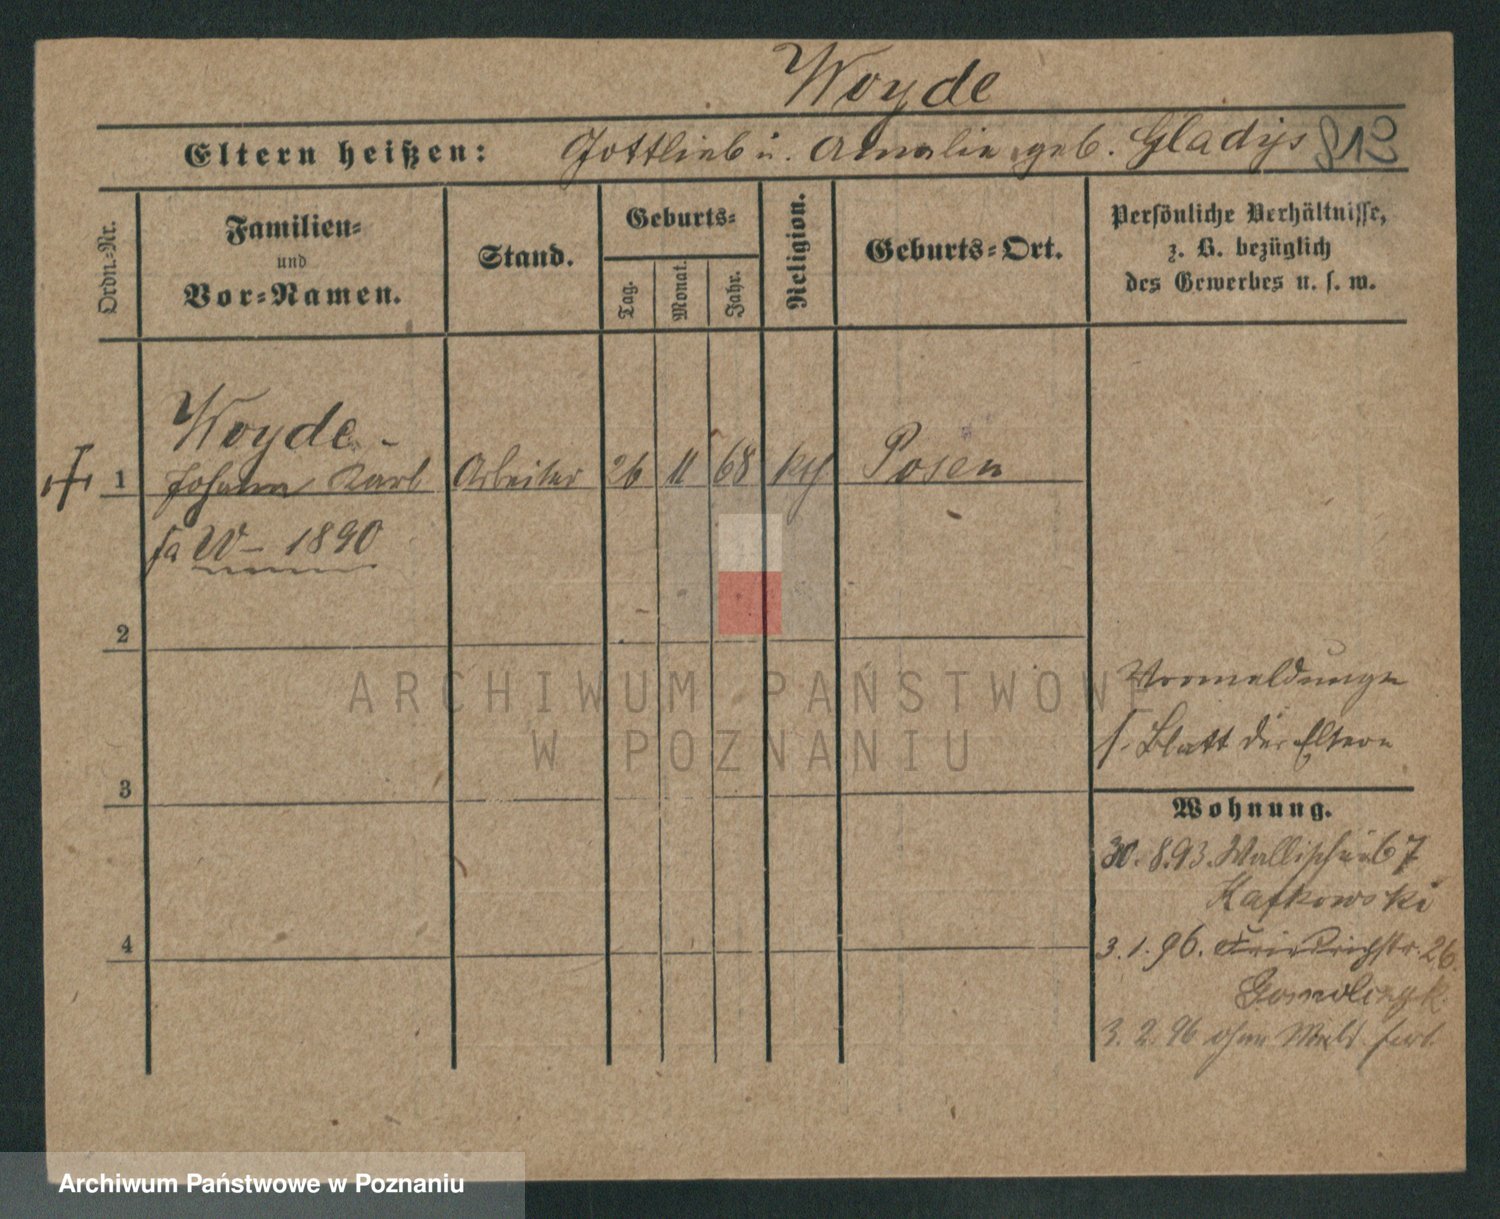 Woyde
Eltern heißen: Gottlieb u. Amalie geb. Gladys 813
Ordn.-Nr.
Familien-
und
Vor-Namen.
Stand.
Geburts-
Tag.
Monat.
Jahr.
Religion.
Geburts-Ort.
Persönliche Verhältnisse,
z. B. bezüglich
des Gewerbes u. s. w.
Woyde
1 Johann Karl Arbeiter 26 11 68 Posen
W - 1890
2
Vormeldungen
s. Blatt der Eltern
3
Wohnung.
30.8.93. Wallischei 67
4
3.1.96. Friedrichstr. 26.
3.2.96 ohne
ARCHIWUM PAŃSTWOWE
W POZNANIU
Archiwum Państwowe w Poznaniu